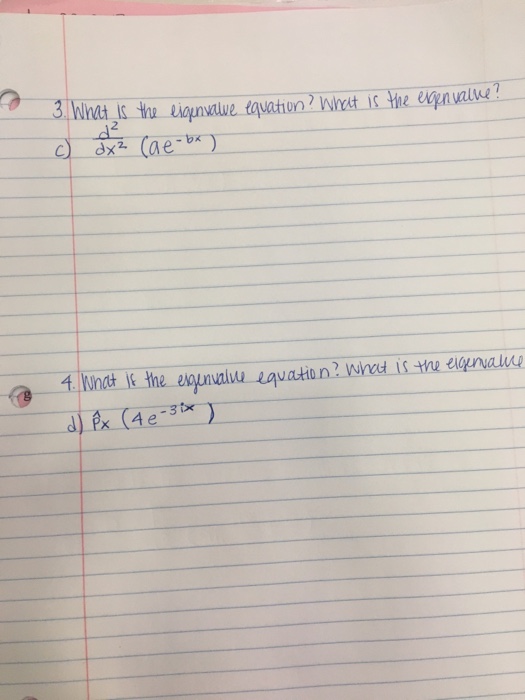 3. What is the eigenvalue equation? What is the eigenvalue?
c) d²/dx² (ae^-bx)
4. What is the eigenvalue equation? What is the eigenvalue
d) P̂x (4e^-3ix)